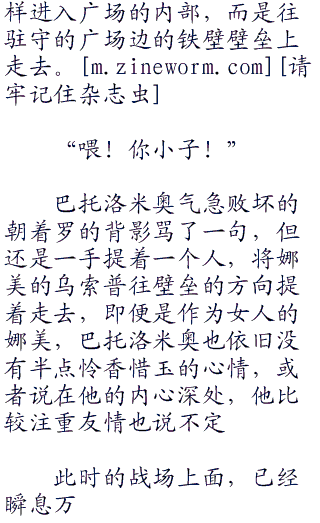 样进入广场的内部，而是往
驻守的广场边的铁壁壁垒上
走去。[m.zineworm.com][请
牢记住杂志虫]
“喂！你小子！”
巴托洛米奥气急败坏的
朝着罗的背影骂了一句，但
还是一手提着一个人，将娜
美的乌索普往壁垒的方向提
着走去，即便是作为女人的
娜美，巴托洛米奥也依旧没
有半点怜香惜玉的心情，或
者说在他的内心深处，他比
较注重友情也说不定
此时的战场上面，已经
瞬息万